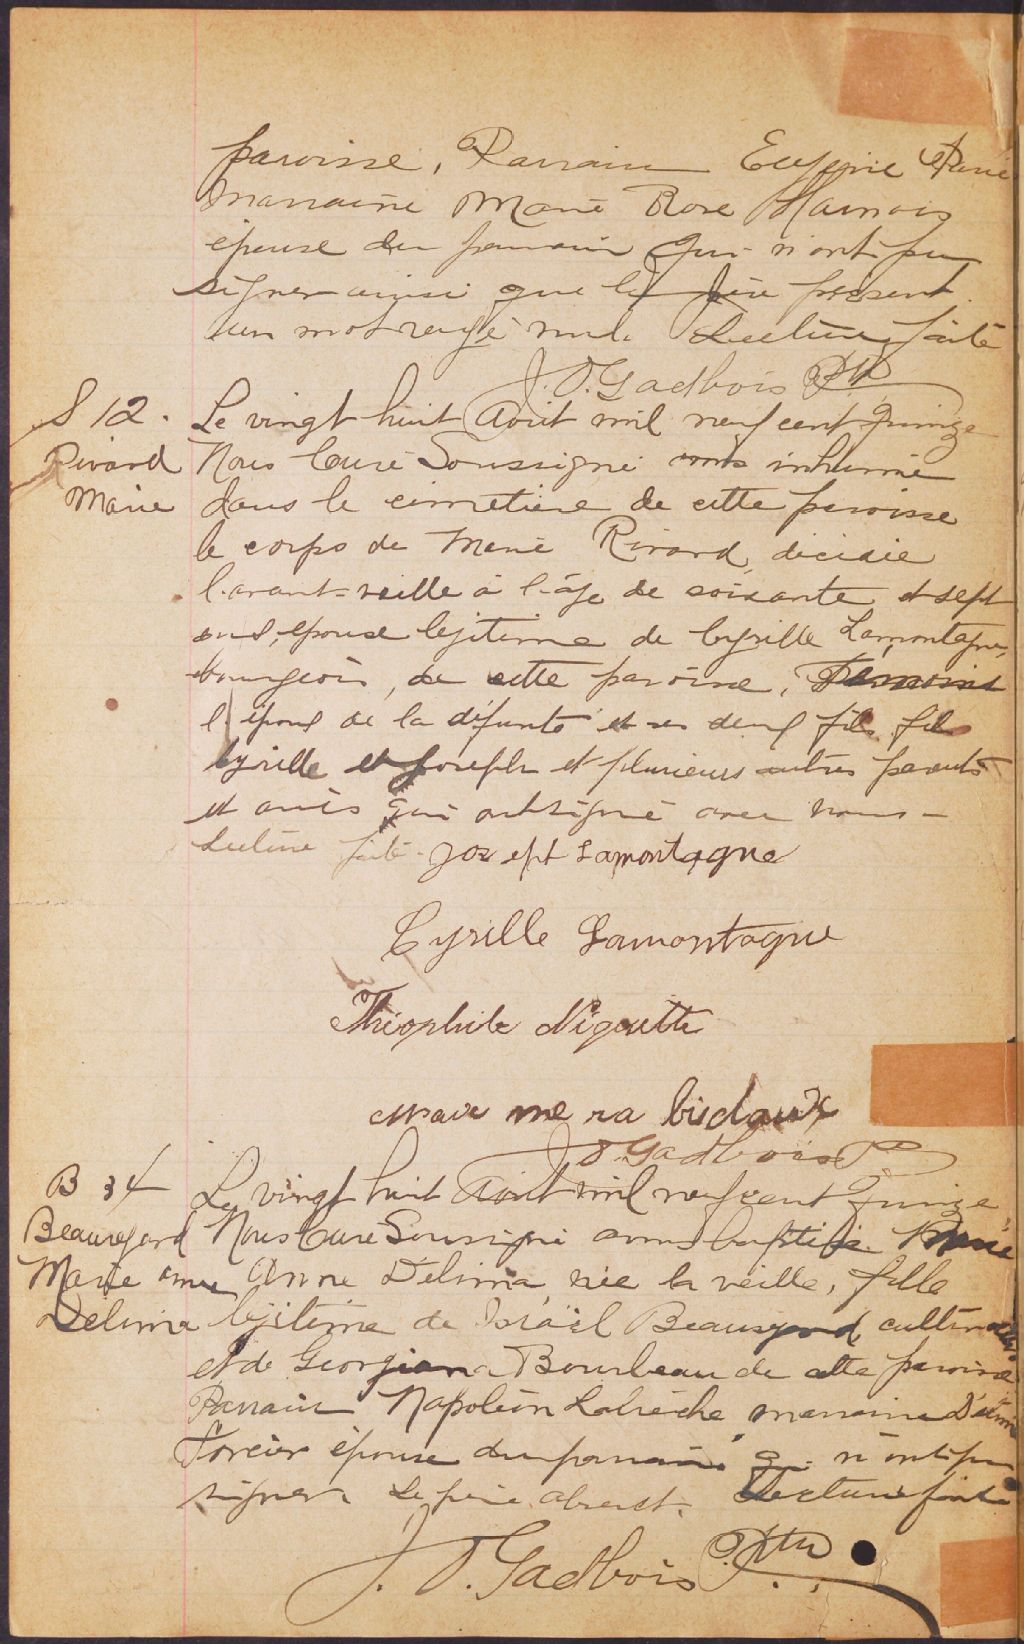 paroisse, Parrain Eugenie
marraine Marie Rose Harnois
épouse du parrain qui n'ont pu
signer ainsi que le père présent.
un mot rayé nul. Lecture faite
J. O. Gadbois Ptre
S 12.
Rivard
Marie
Le vingt huit Août mil neuf cent quinze
Nous Curé Soussigné avons inhumé
dans le cimetière de cette paroisse
le corps de Marie Rivard, décédée
l'avant-veille à l'âge de soixante et sept
ans, épouse légitime de Cyrille Lamontagne,
bourgeois, de cette paroisse. Témoins
l'époux de la défunte et ses deux fils
Cyrille et Joseph et plusieurs autres parents
et amis qui ont signé avec nous -
Lecture faite - Josept Lamontagne
Cyrille Lamontagne
Théophile
J O Gadbois Ptre
B 34
Beauregard
Marie Anne
Delima
Le vingt huit Août mil neuf cent quinze,
Nous Curé Soussigné avons baptisé Marie
Anne Délima, née la veille, fille
légitime de Israël Beauregard, cultivateur
et de Georgiana Bourbeau de cette paroisse
Parrain Napoléon Labrèche marraine Délima
Forcier épouse du parrain q. n'ont pu
signer. Le père absent. Lecture faite
J. O. Gadbois Ptre